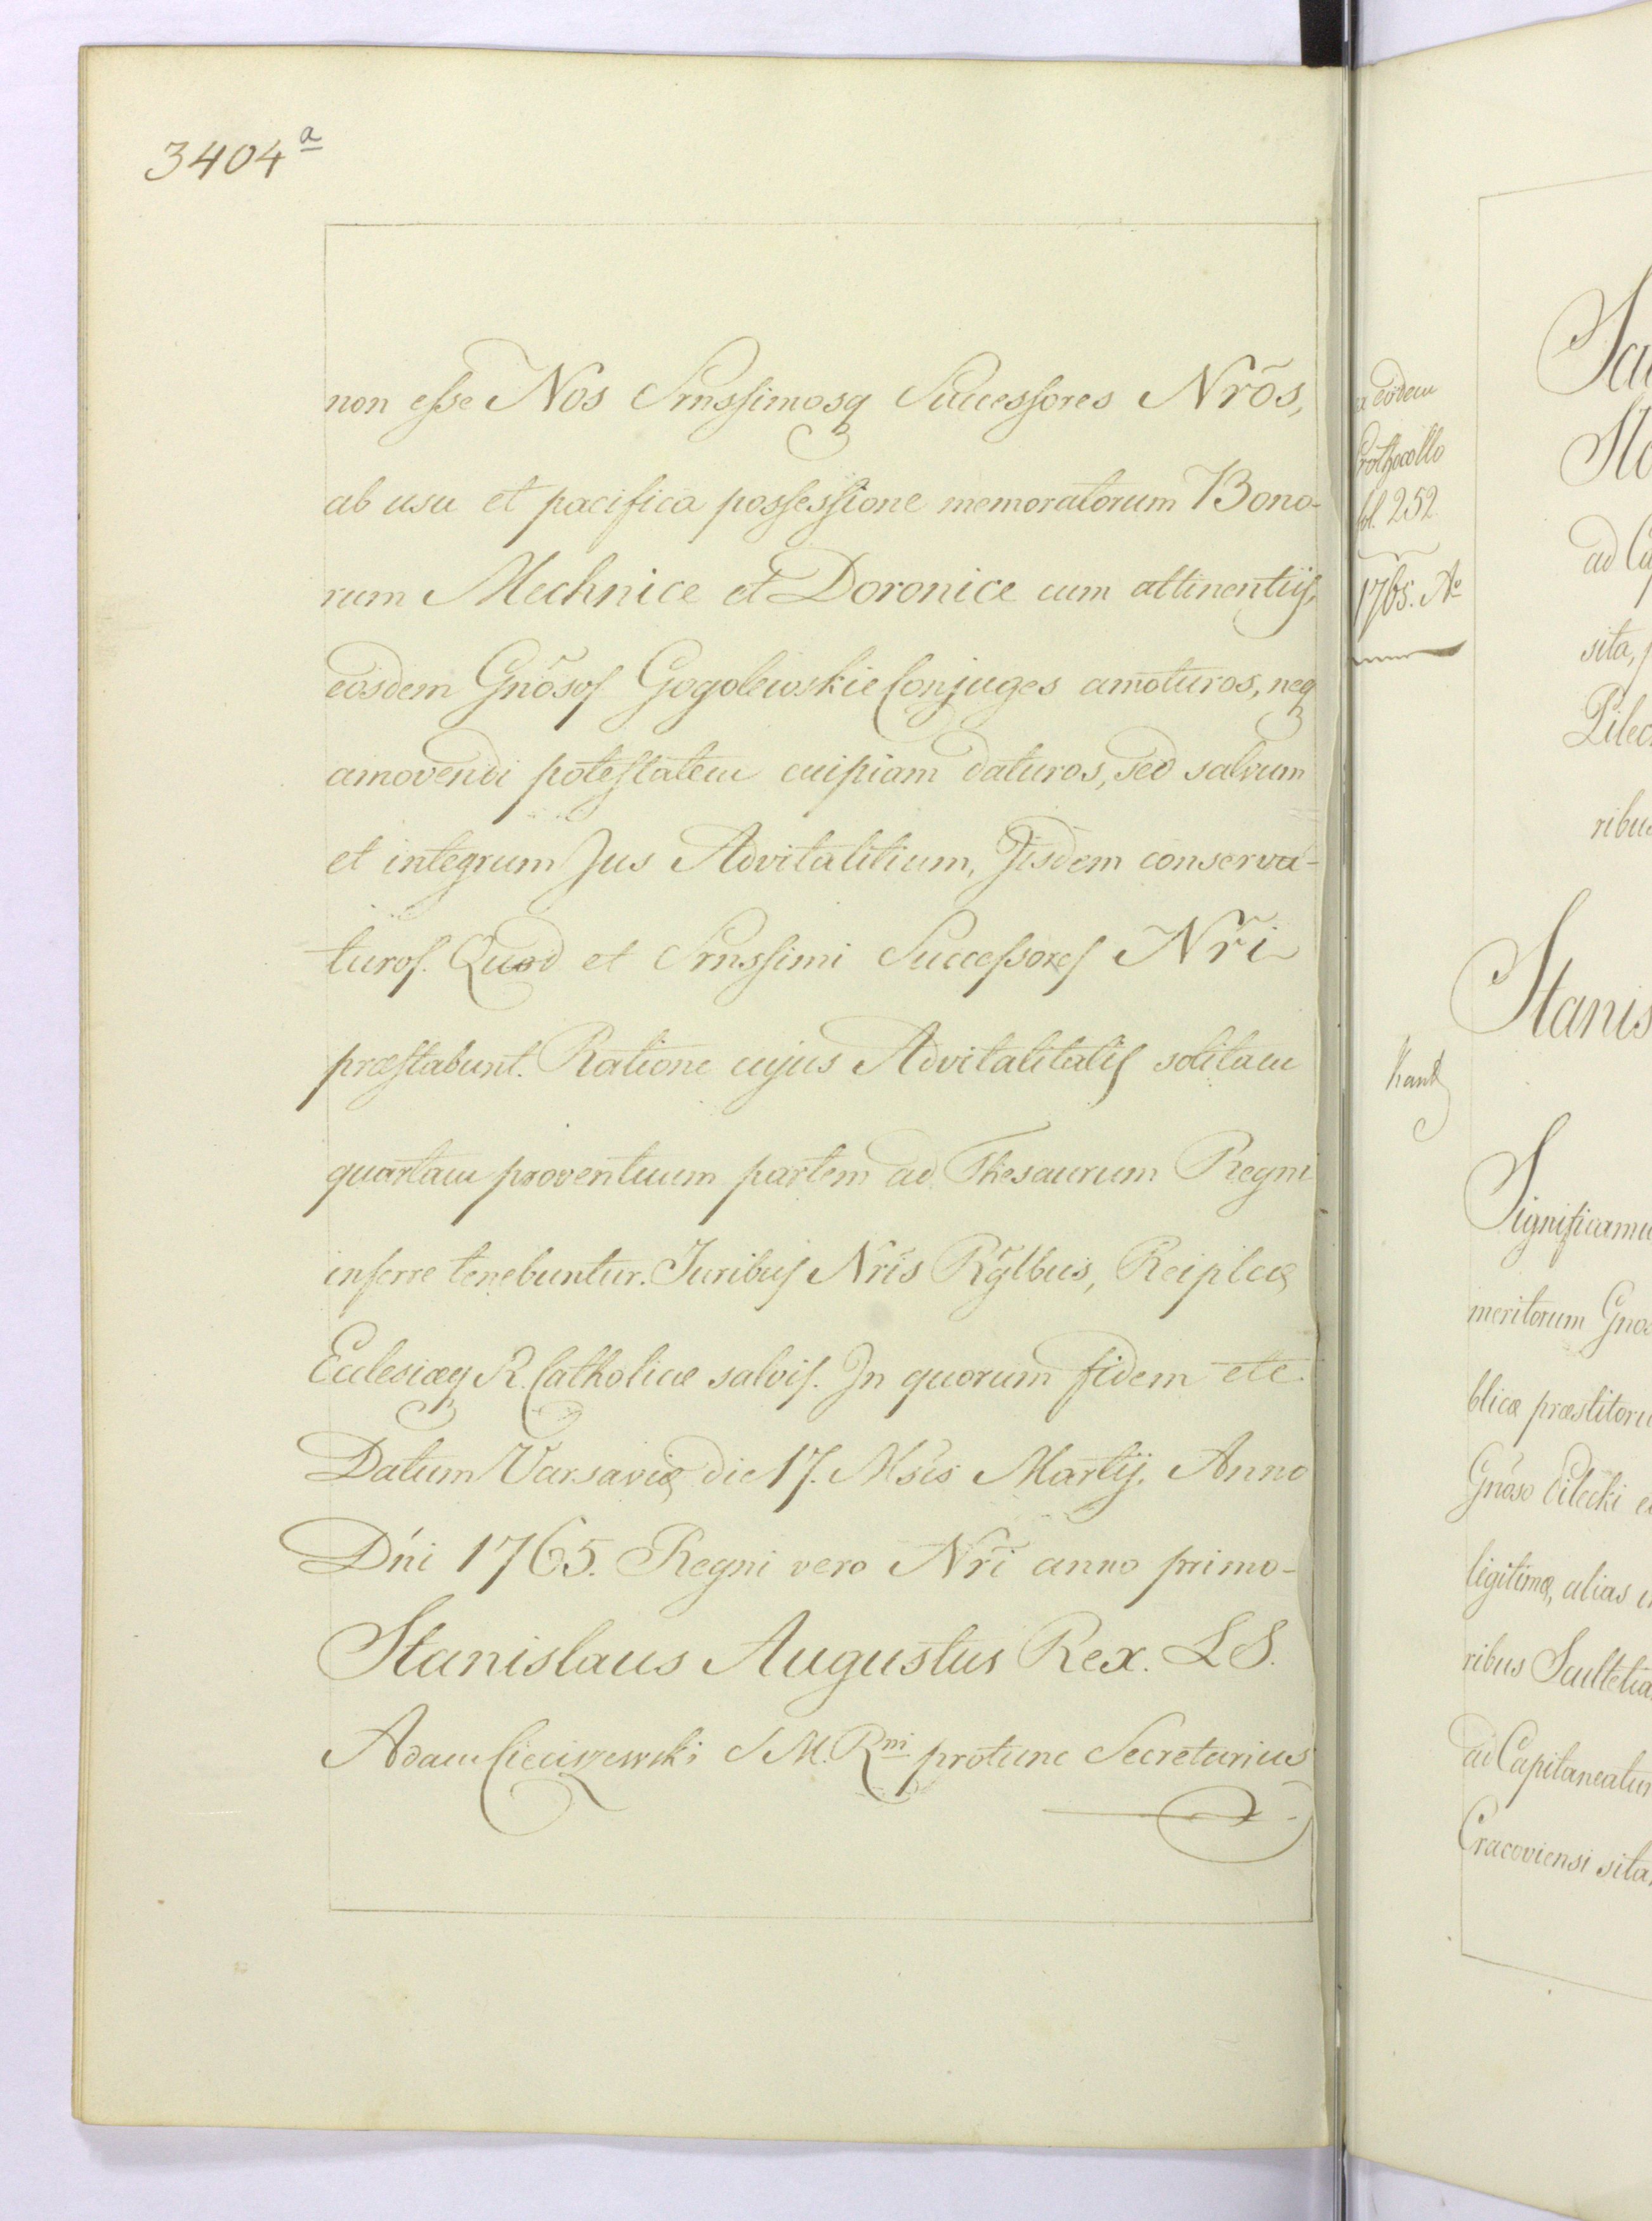 3404a
non esse Nos Srnssimosq Successores Nrõs,
ab usu et pacifica possessione memoratorum Bono-
rum Mechnice et Doronice cum attinentijs,
eosdem Gnõsos Gogolewskie Conjuges amoturos, neq
amovendi potestatem cuipiam daturos, sed salvum
et integrum Jus Advitalitium, Jisdem conserva-
turos. Quod et Srnssimi Successores Nri
præstabunt. Ratione cujus Advitalitatis solitam
quartam proventuum partem ad Thesaurum Regni
inferre tenebuntur. Juribus Nris Rglbus, Reiplcæ
Ecclesiæq R. Catholicæ salvis. In quorum fidem etc.
Datum Varsaviæ die 17. Msis Martij. Anno
Dni 1765. Regni vero Nri anno primo-
Stanislaus Augustus Rex. LS.
Adam Cieciszewski SM.Rni protunc Secretarius
eodem
Prothocollo
fol. 252
1765. Ao
Sta
ad Ca
sita,
Pilec
ribus
Stanis
Significamu
meritorum Gnos
blicæ præstitoru
Gnõso Pilecki e
legitimæ, alias i
ribus Scultetia
ad Capitaneatum
Cracoviensi sita,